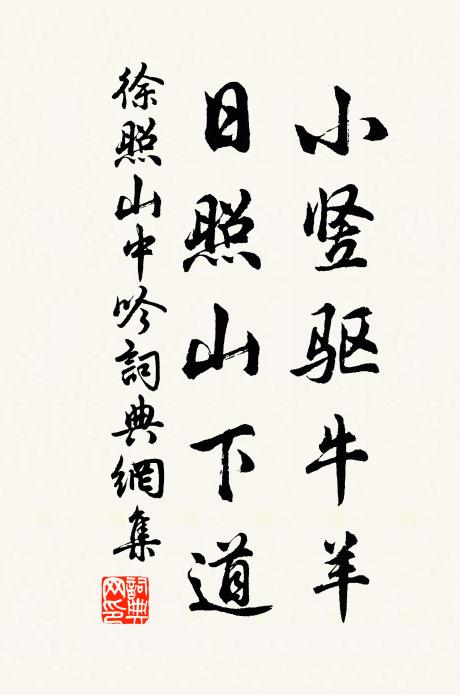 小竖驱牛羊
日照山下道
徐照山中吟詞典網集
詞典網印